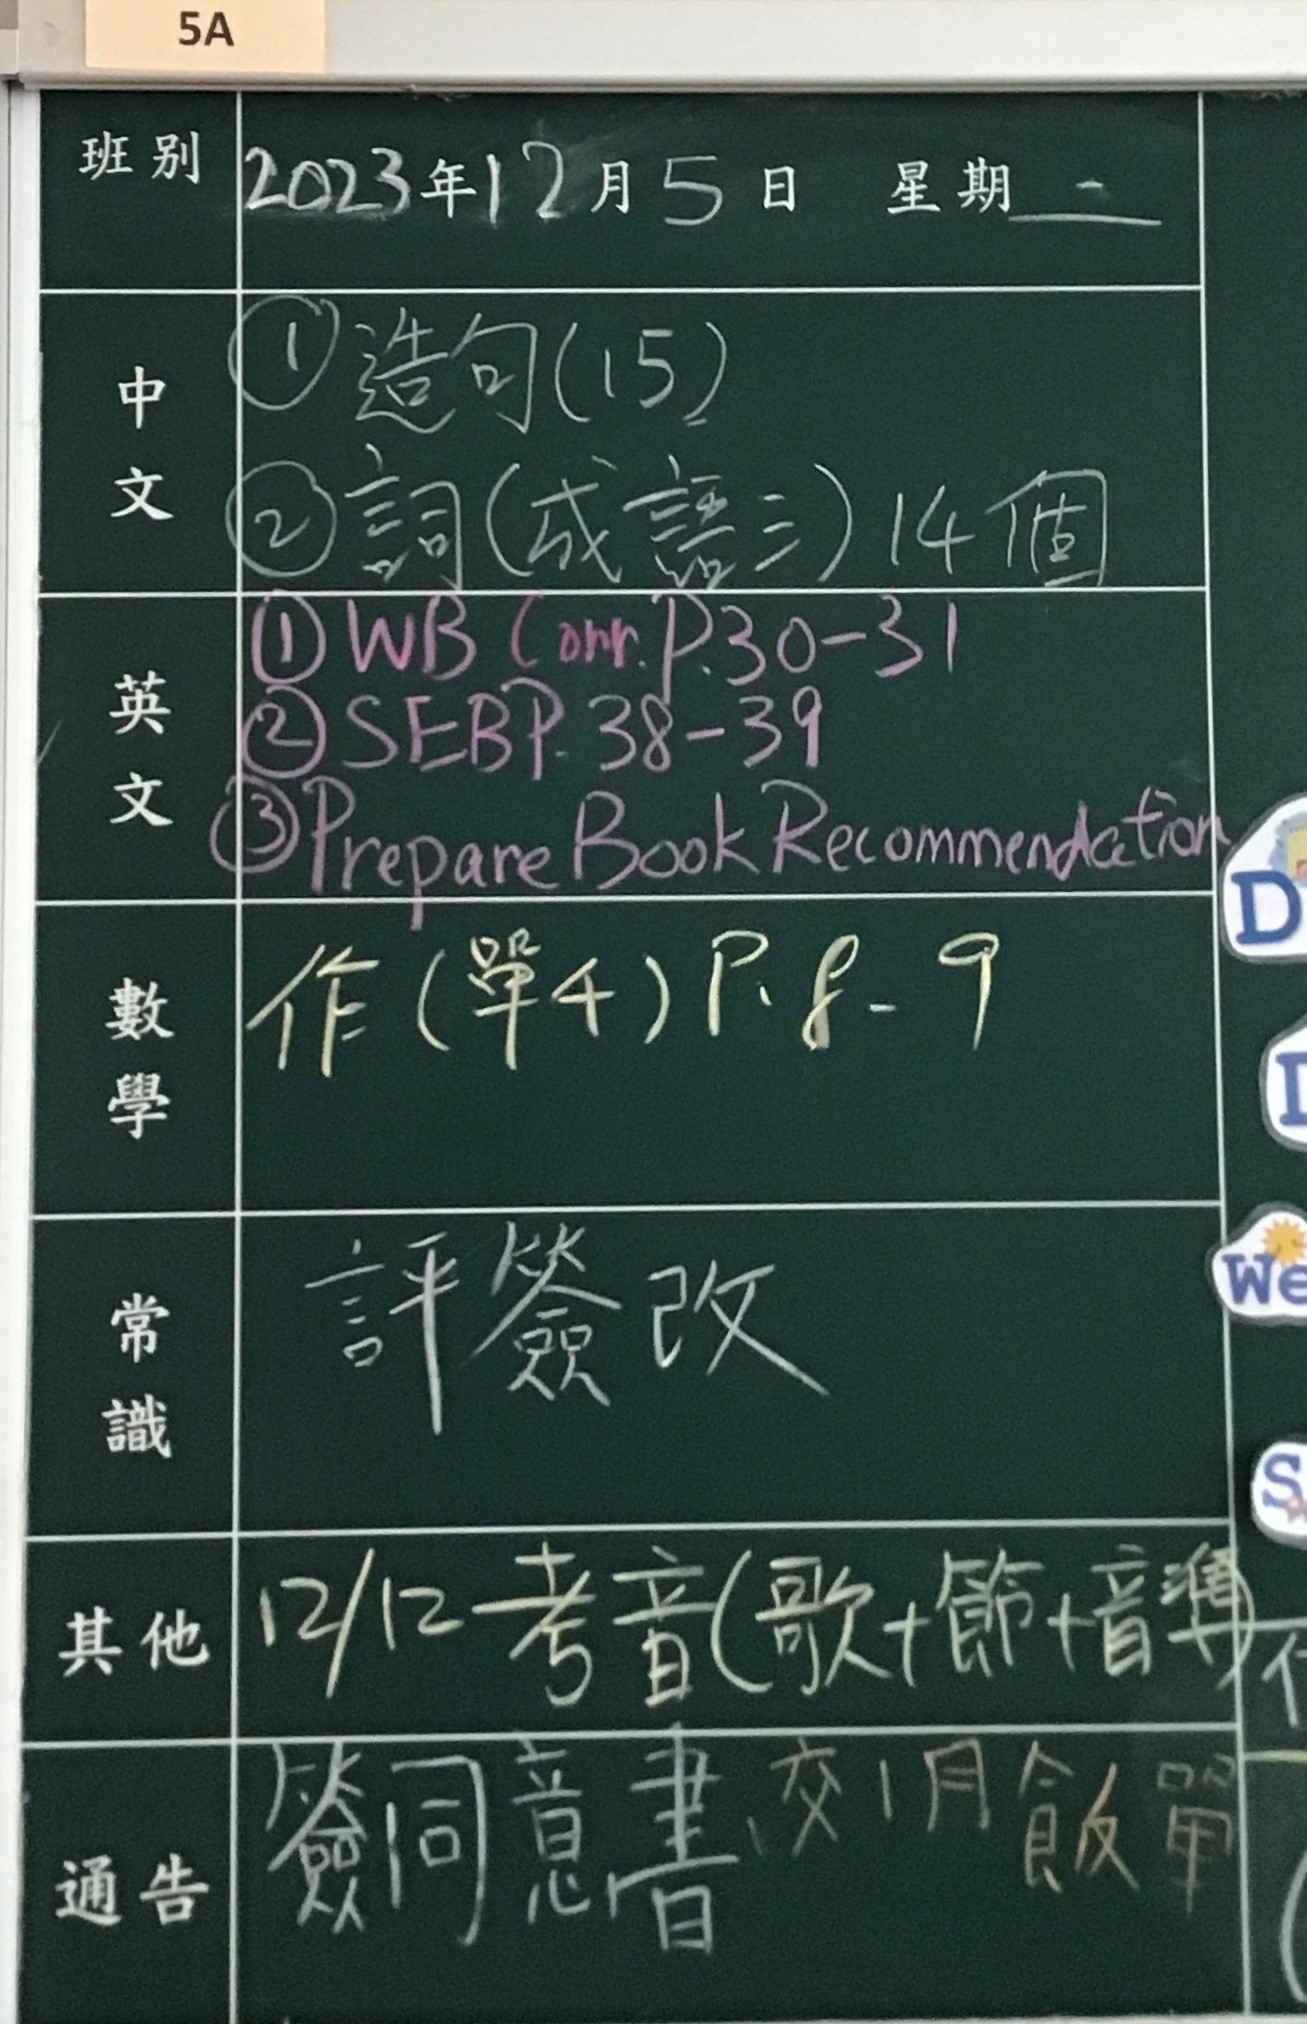 5A
班別 2023年12月5日 星期一
中文
①造句(15)
②詞(成語三)14個
英文
①WB Corr. P.30-31
②SEB P.38-39
③Prepare Book Recommendation
數學
作(單4)P.8-9
常識
評簽改
其他
12/12 考音(歌+節+音準)
通告
簽同意書、交1月飯單
D
I
We
S